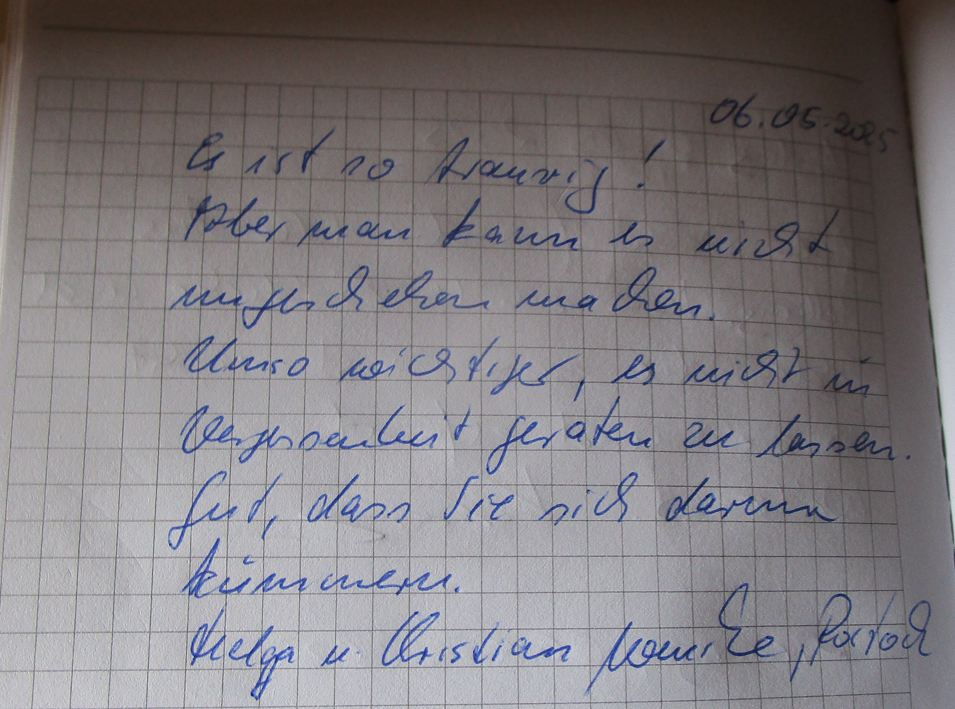 06.05.2025
Es ist so traurig!
Aber man kann es nicht
ungeschehen machen.
Umso wichtiger, es nicht in
Vergessenheit geraten zu lassen.
Gut, dass Sie sich darum
kümmern.
Helga u. Christian